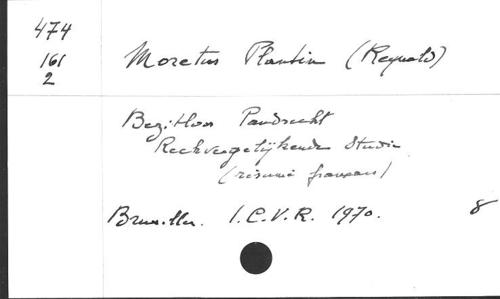 474
161
2
Moretus Plantin (Reynald)
Bezitloos Pandrecht
Rechtsvergelijkende Studie
(résumé français)
Bruxelles. I.C.V.R. 1970. 8